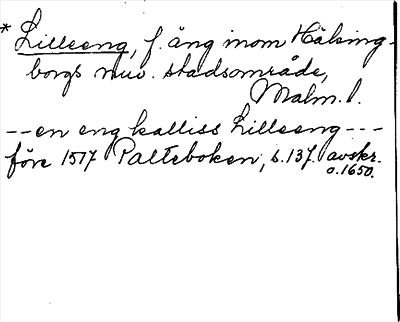 * Lilleeng, f. äng inom Hälsing-
borgs nuv. stadsområde,
Malm. l.
--en eng kalliss Lilleeng---
före 1517 Palteboken, s.137. avskr.
o.1650.